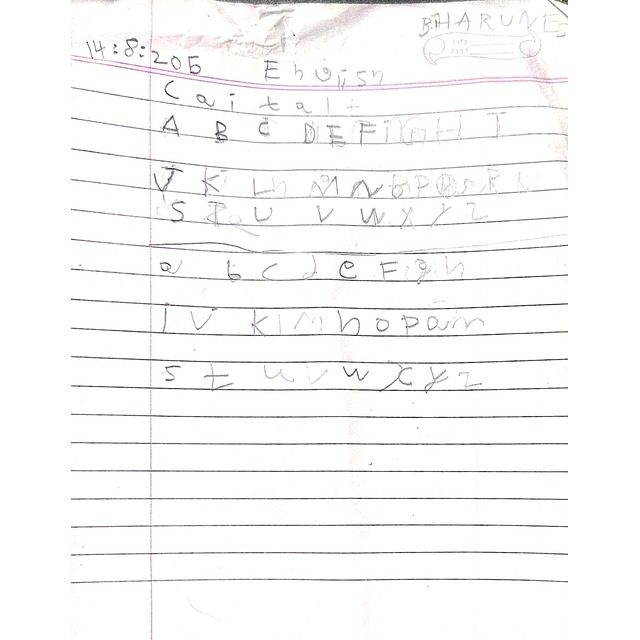 B.HARUNE
14:8:205
English
Caital
A B C D E F G H I
J K L M N O P Q R
S T U V W X Y Z
a b c d e F g h
i v K l m n o p q m
s t u v w x y z